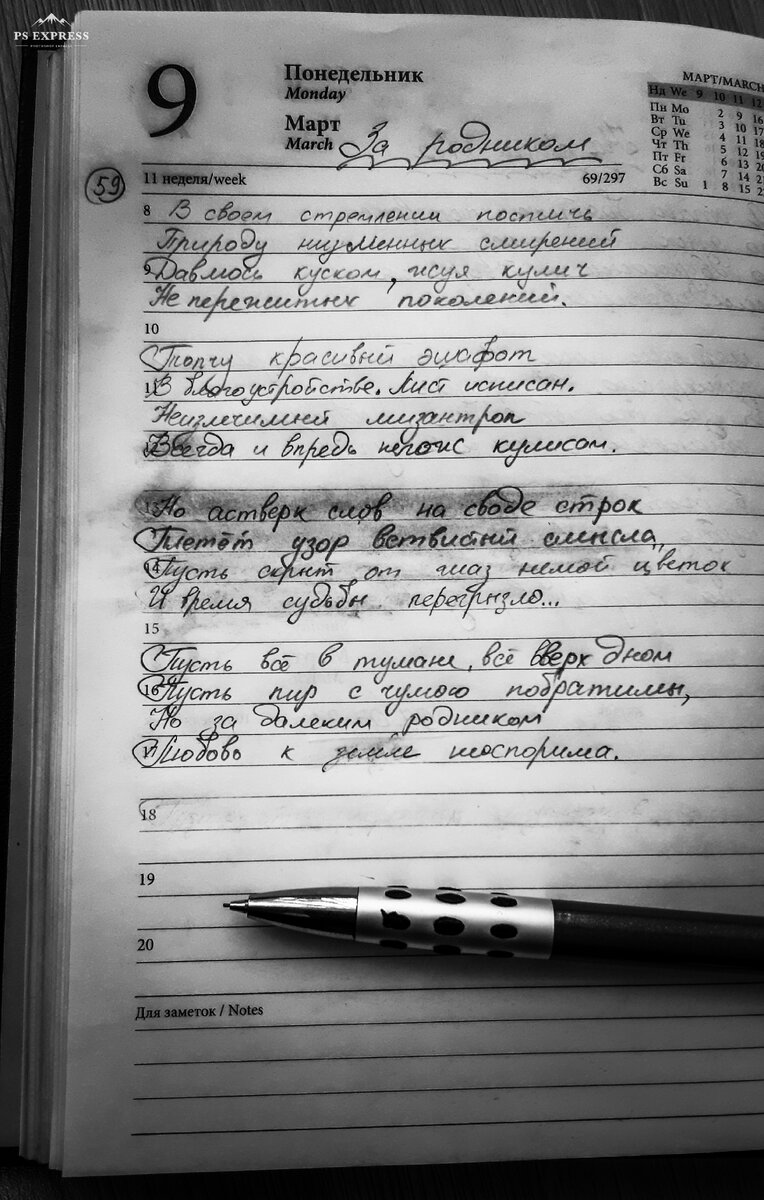 PS EXPRESS
9
Понедельник
Monday
Март
March
За родником
МАРТ/MARCH
Нд We 9 10 11 12
Пн Mo 2 9 16
Вт Tu 3 10 17
Ср We 4 11 18
Чт Th 5 12 19
Пт Fr 6 13 20
Сб Sa 7 14 21
Вс Su 1 8 15 22
59
11 неделя/week
69/297
8 В своём стремлении постичь
Природу низменных смирений
9 Давлюсь куском, жуя кулич
Не пережитых поколений.
10
Топчу красивый эшафот
11 В благоустройстве. Лист исписан.
Неизлечимый мизантроп
12 Всегда и впредь кулисам.
13 Но астверк слов на своде строк
Плетёт узор ветвистый смысла,
14 Пусть скрыт от глаз немой цветок
И время судьбы перегрызло...
15
Пусть всё в тумане, всё вверх дном
16 Пусть пир с чумою побратимы,
Но за далёким родником
17 Любовь к земле неоспорима.
18
19
20
Для заметок / Notes